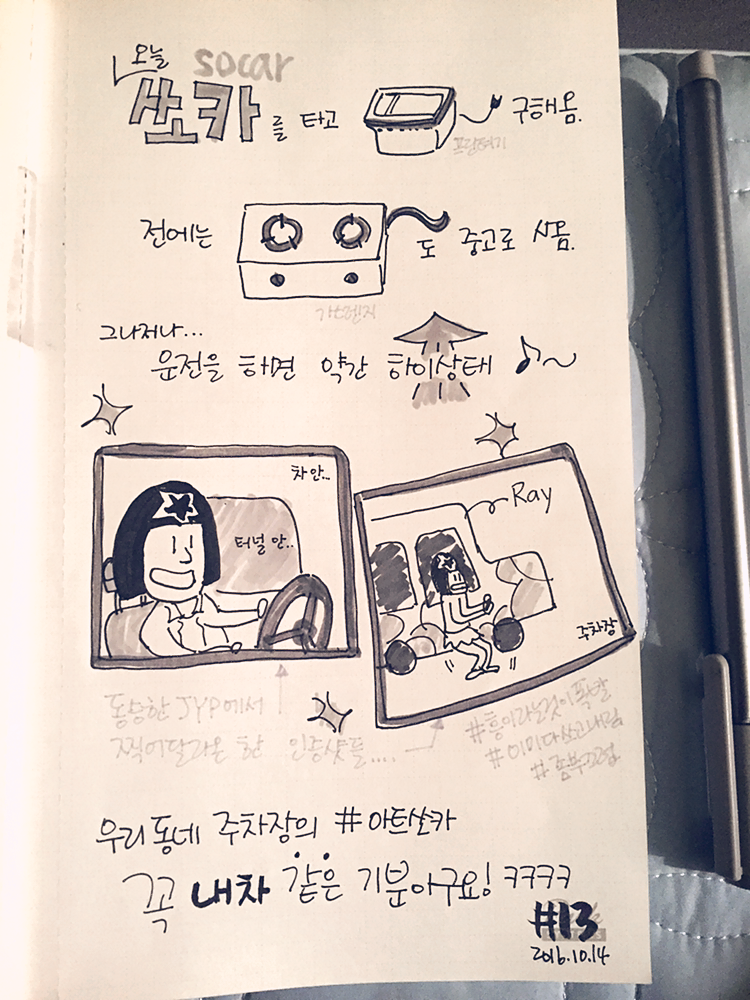 오늘 socar
쏘카를 타고 구해옴.
전에는 도 중고로 사옴.
가스렌지
그나저나...
운전을 하면 약간 하이상태
차 안..
터널 안..
Ray
주차장
동승한 JYP에서
찍어달라온 한 인증샷들....
#흥이라는것이폭발
우리동네 주차장의 #아트쏘카
꼭 내차 같은 기분아구요! ㅋㅋㅋㅋ
#13
2016.10.14